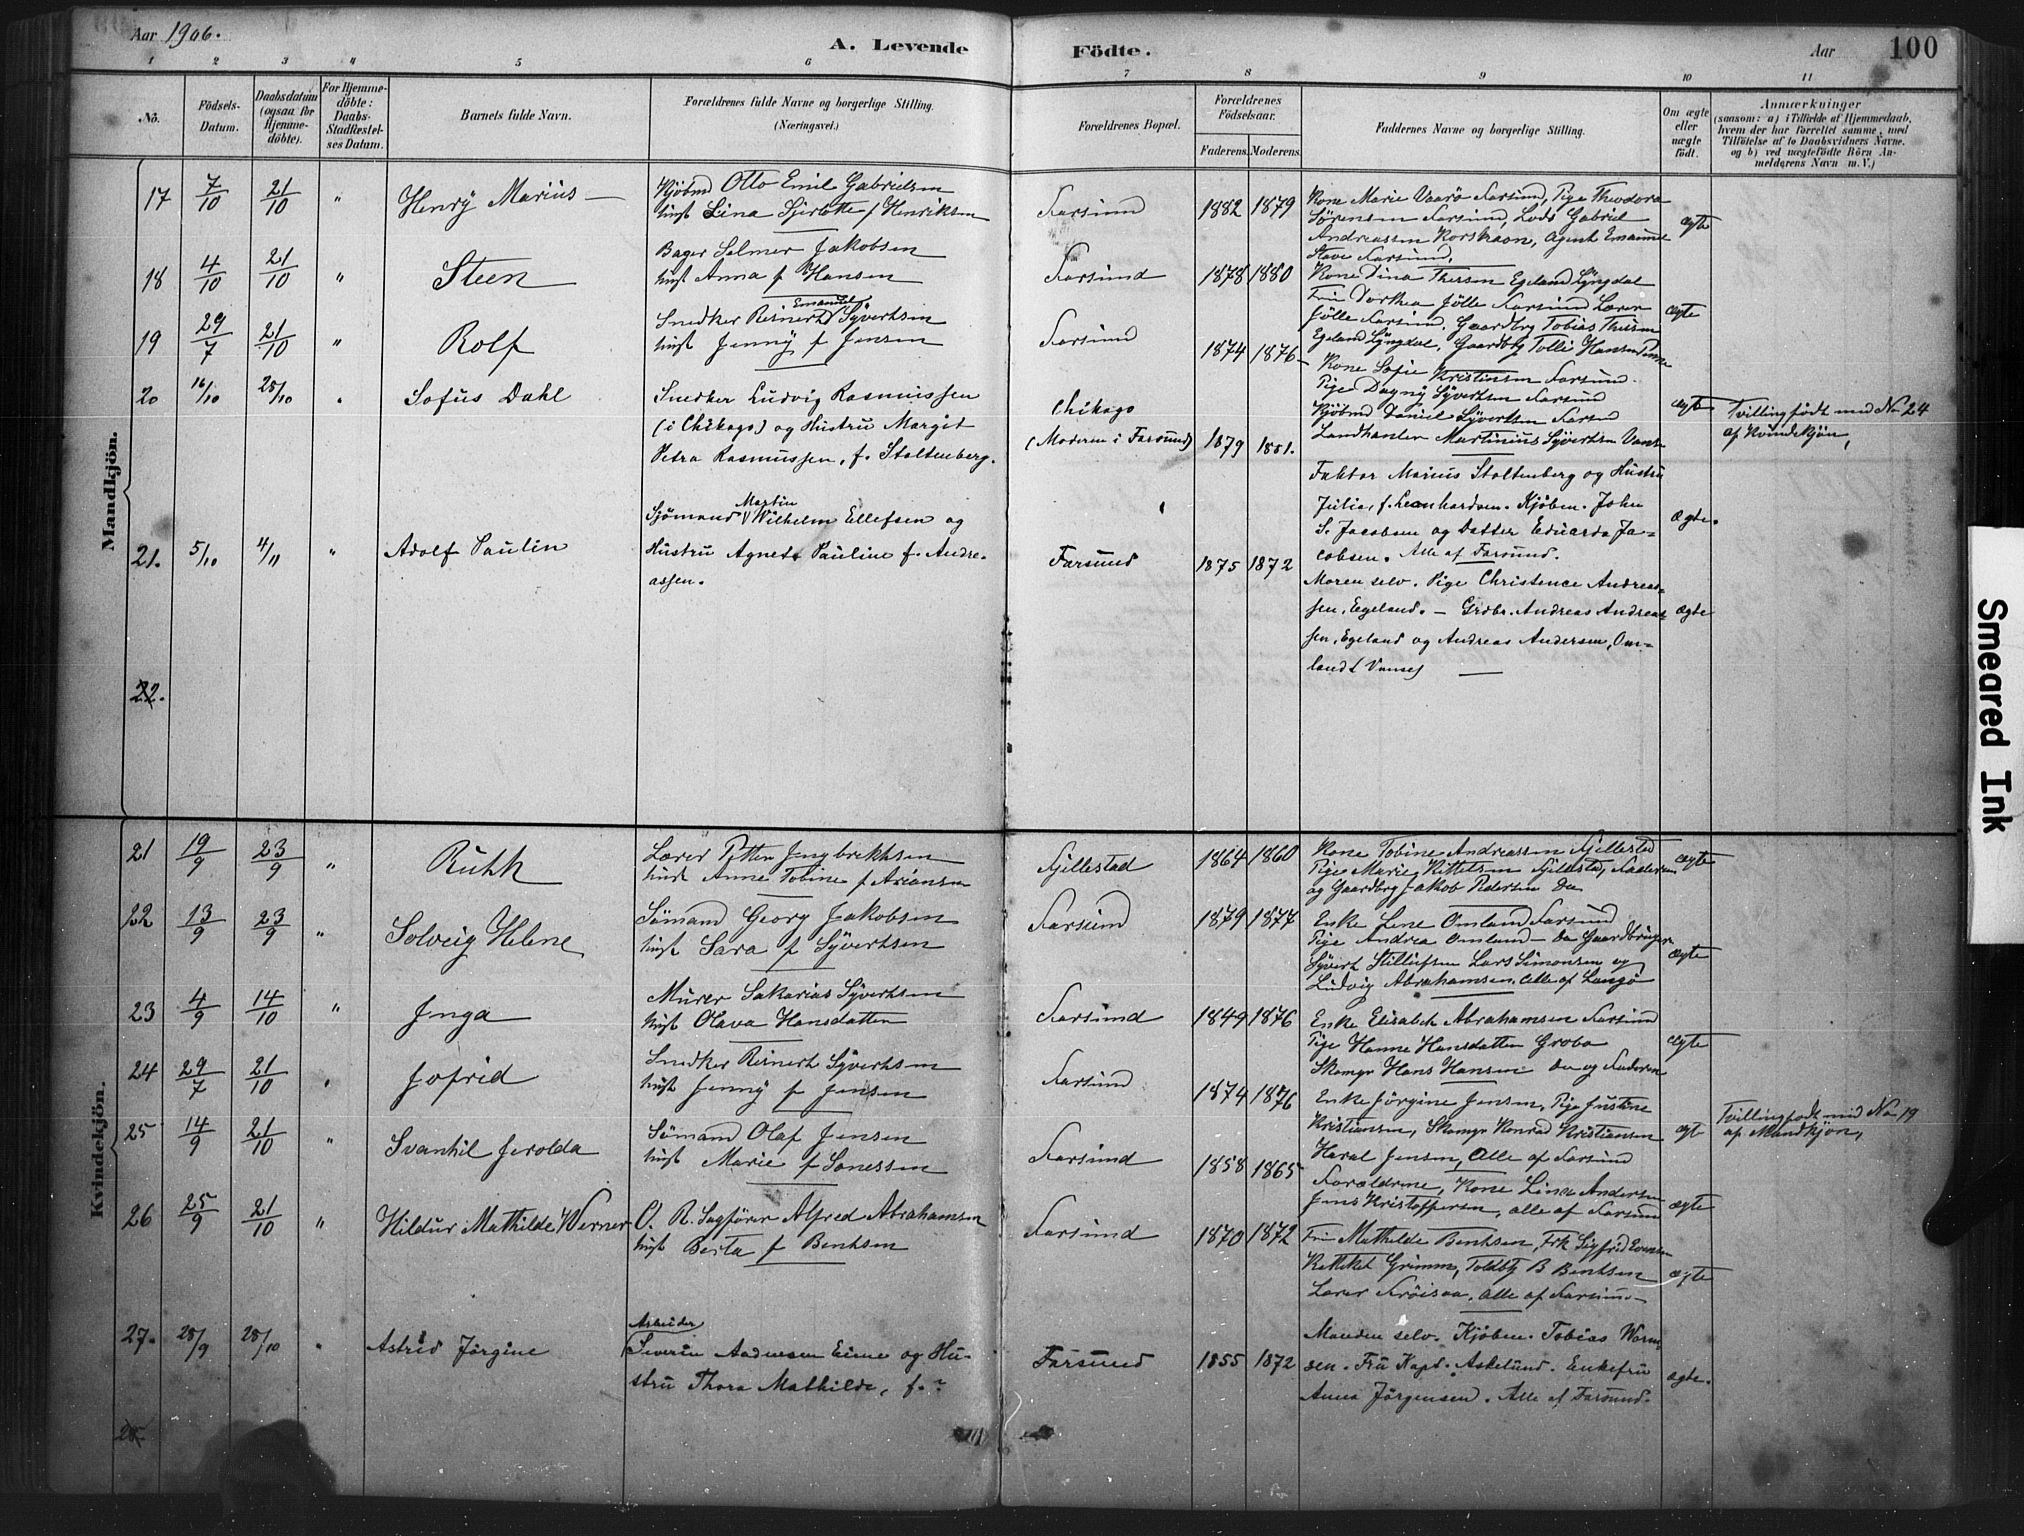 Aar 1906.
A. Levende Födte.
Aar
100
1 2 3 4 5 6 7 8 9 10 11
No.
Födsels-
Datum.
Daabsdatum
(ogsaa for
Hjemme-
döbte).
For Hjemme-
döbte:
Daabs-
Stadfæstel-
ses Datum.
Barnets fulde Navn.
Forældrenes fulde Navne og borgerlige Stilling.
(Næringsvei.)
Forældrenes Bopæl.
Forældrenes
Födselsaar.
Faderens. Moderens.
Faddernes Navne og borgerlige Stilling.
Om ægte
eller
uægte
födt.
Anmærkninger
(saasom: a) i Tilfælde af Hjemmedaab,
hvem der har forrettet samme, med
Tilföielse af to Daabsvidners Navne.
og b) ved uægtefödte Börn An-
melderens Navn m. V.)
Mandkjön.
17 7/10 21/10 " Henry Marius
Kjöbmd Otto Emil Gabrielsen
hust Lina Sjerlotte f Henriksen
Farsund 1882 1879
Kone Marie Vaarö Farsund, Pige Theodora
Sörensen Farsund, Lods Gabriel
Andreassen Korshavn, Agent Emanuel
Stave Farsund,
ægte
18 4/10 21/10 " Steen
Bager Selmer Jakobsen
hust Anna f Hansen
Farsund 1878 1880
Kone Dina Thersen Egeland Lyngdal
Fru Dorthea Jölle Farsund Lærer
Jölle Farsund, Gaardbrg Tobias Thersen
Egeland Lyngdal, Gaardbrg Tolli Hansen
ægte
19 29/7 21/10 " Rolf
Snedker Reinert Emanuel Syvertsen
hust Jenny f Jensen
Farsund 1874 1876
Kone Sofie Kristiansen Farsund
Pige Dagny Syvertsen Farsund
Kjöbmd Daniel Syvertsen Farsd
Landhandler Martinius Syvertsen Vanse
ægte
Tvillingfödt med No 24
af Kvindekjön,
20 16/10 28/10 " Sofus Dahl
Snedker Ludvig Rasmussen
(i Chikago) og Hustru Margit
Petra Rasmussen, f. Stoltenberg.
Chikago
(Moderen i Farsund) 1879 1881.
Faktor Marius Stoltenberg og Hustru
Julia, f. Leonhardsen. Kjöbm. John
S. Jacobsen og Datter Eduarda Ja-
cobsen. Alle af Farsund.
Ægte.
21. 5/10 4/11 " Adolf Paulin
Sjömand Martin Wilhelm Ellefsen og
Hustru Agnete Pauline f. Andre-
assen.
Farsund 1875 1872
Moren selv. Pige Christence Andreas-
sen, Egeland. – Grdbr. Andreas Andreas-
sen, Egeland og Andreas Andersen, Om-
land (Vanse)
Ægte
22.
Kvindekjön.
21 19/9 23/9 " Ruth
Lærer Petter Ingbrektsen
hust Anne Tobine f Arionsen
Fjellestad 1864 1860
Kone Tobine Andreassen Fjellestad
Pige Marie Kittelsen Fjellestad, Faderen
og Gaardbrg Jakob Pedersen Do
ægte
22 13/9 23/9 " Solveig Helene
Sömand Georg Jakobsen
hust Sara f Syvertsen
Farsund 1879 1877
Enke Lene Omland Farsund
Pige Andrea Omland – Do Gaardbruger
Syvert Stillufsen Lars Simonsen og
Ludvig Abrahamsen, Alle af Langö
ægte
23 4/9 14/10 " Inga
Murer Sakarias Syvertsen
hust Olava Hansdatter
Farsund 1849 1876
Enke Elisabet Abrahamsen Farsund
Pige Hanne Hansdatter Grobo
Skomgr Hans Hansen Do og Faderen
ægte
24 29/7 21/10 " Jofrid
Snedker Reinert Syvertsen
hust Jenny f Jensen
Farsund 1874 1876
Enke Jörgine Jensen, Pige Justine
Kristiansen, Skomgr Konrad Kristiansen
Haral Jensen, Alle af Farsund
ægt
Tvillingfödt med No 19
af Mandkjön,
25 14/9 21/10 " Svanhil Jerolda
Sömand Olaf Jensen
hust Marie f Sonessen
Farsund 1858 1865
Forældrene, Kone Lina Andersen
Jens Kristoffersen, alle af Farsund
ægte
26 25/9 21/10 " Hildur Mathilde Werner
O. R. Sagförer Alfred Abrahamsen
hust Berta f Bentsen
Farsund 1870 1872
Fru Mathilde Bentsen, Frk Sigfrid Evensen
Grimm, Toldbtj B Bentsen
Lærer Fröisaa, Alle af Farsund
ægte
27. 28/9 28/10 " Astrid Jörgine
Arbeider
Severin Andersen Eime og Hu-
stru Thora Mathilde, f. ?
Farsund 1855 1872
Manden selv. Kjöbm. Tobias Worm-
sen. Fru Kapt. Askelund. Enkefru
Anna Jörgensen. Alle af Farsund.
ægte.
28.
Smeared Ink